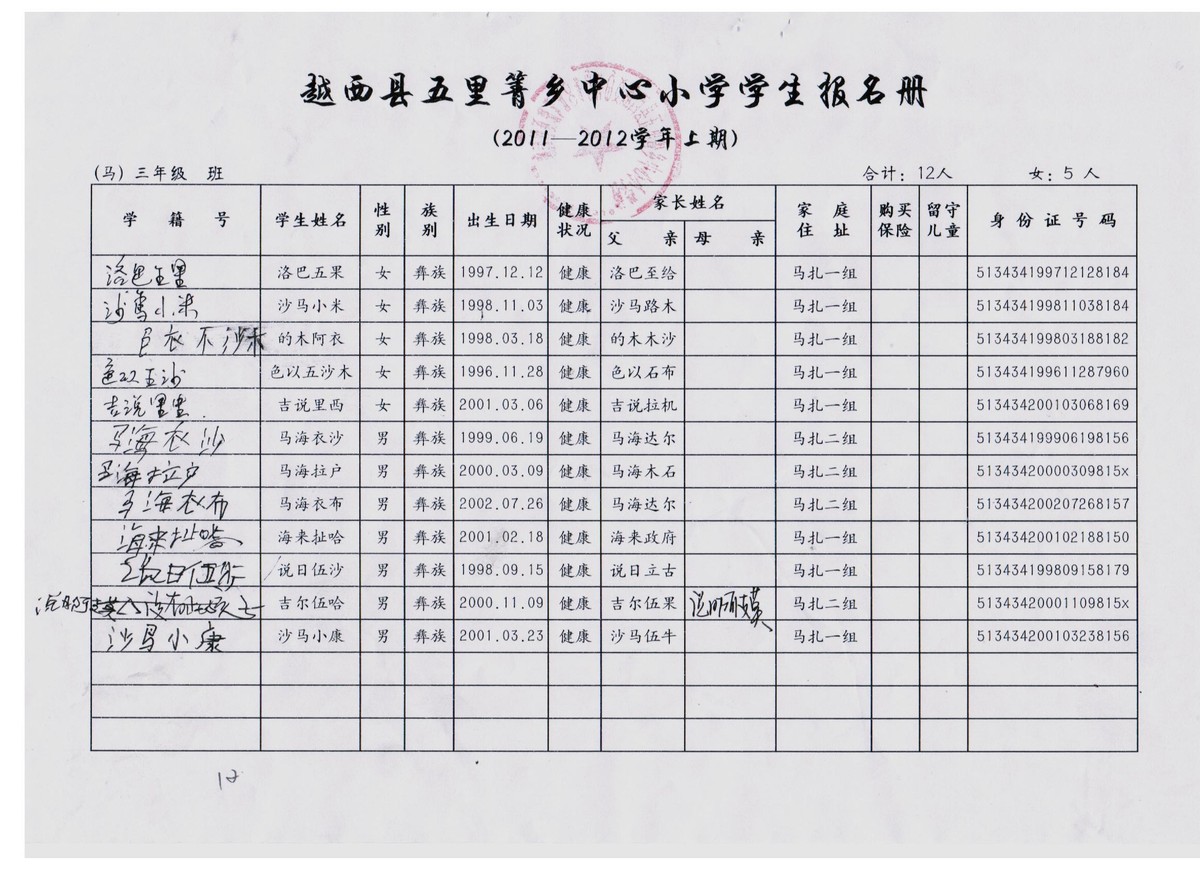 越西县五里箐乡中心小学学生报名册
(2011—2012学年上期)
(马) 三年级 班 合计：12人 女：5 人
学 籍 号 学生姓名 性别 族别 出生日期 健康状况 家长姓名 父 亲 母 亲 家 庭 住 址 购买保险 留守儿童 身 份 证 号 码
洛巴五果 女 彝族 1997.12.12 健康 洛巴至给 马扎一组 513434199712128184
沙马小米 沙马小米 女 彝族 1998.11.03 健康 沙马路木 马扎一组 513434199811038184
的木阿衣 女 彝族 1998.03.18 健康 的木木沙 马扎一组 513434199803188182
色以五沙 色以五沙木 女 彝族 1996.11.28 健康 色以石布 马扎一组 513434199611287960
吉说里 吉说里西 女 彝族 2001.03.06 健康 吉说拉机 马扎一组 513434200103068169
马海衣沙 马海衣沙 男 彝族 1999.06.19 健康 马海达尔 马扎二组 513434199906198156
马海拉户 马海拉户 男 彝族 2000.03.09 健康 马海木石 马扎二组 51343420000309815x
马海衣布 马海衣布 男 彝族 2002.07.26 健康 马海达尔 马扎二组 513434200207268157
海来扯哈 海来扯哈 男 彝族 2001.02.18 健康 海来政府 马扎一组 513434200102188150
说日伍沙 男 彝族 1998.09.15 健康 说日立古 马扎一组 513434199809158179
吉尔伍哈 男 彝族 2000.11.09 健康 吉尔伍果 马扎二组 51343420001109815x
沙马小康 沙马小康 男 彝族 2001.03.23 健康 沙马伍牛 马扎一组 513434200103238156
12